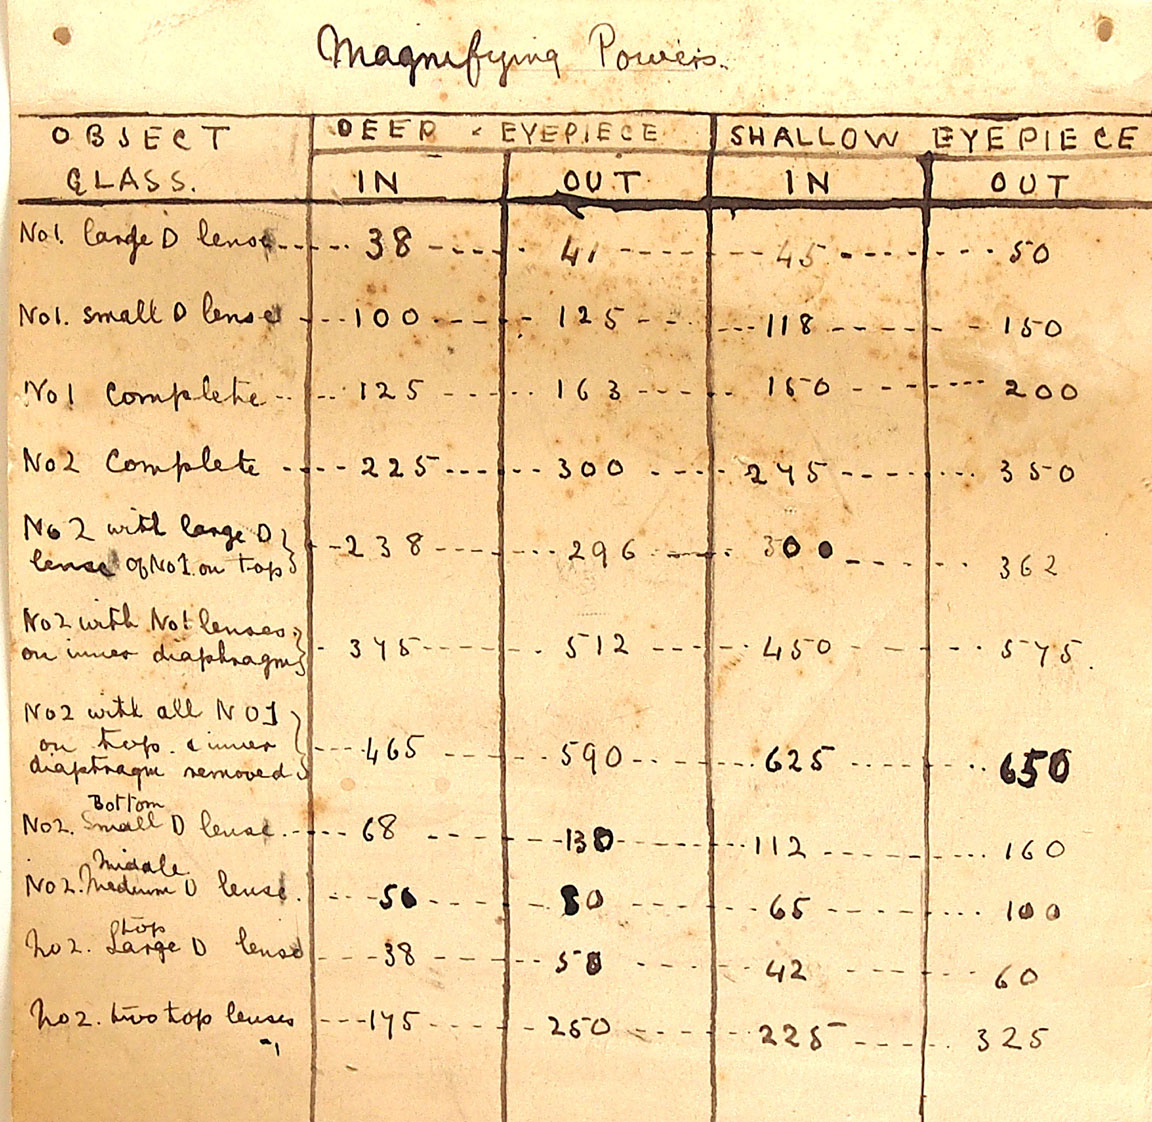 Magnifying Powers.
OBJECT DEEP - EYEPIECE SHALLOW EYEPIECE
GLASS. IN OUT IN OUT
No1. large D lense 38 41 45 50
No1. small D lense 100 125 118 150
No1 Complete 125 163 150 200
No2 Complete 225 300 275 350
No 2 with large D
lense of No1 on top 238 296 300 362
No2 with No1 lenses
on inner diaphragm 375 512 450 575.
No2 with all NO1
on top & inner
diaphragm removed 465 590 625 650
Bottom
No2. Small D lense. 68 130 112 160
Middle
No2. Medium D lense. 50 80 65 100
top
No2. Large D lense 38 50 42 60
No2. two top lenses 175 250 225 325